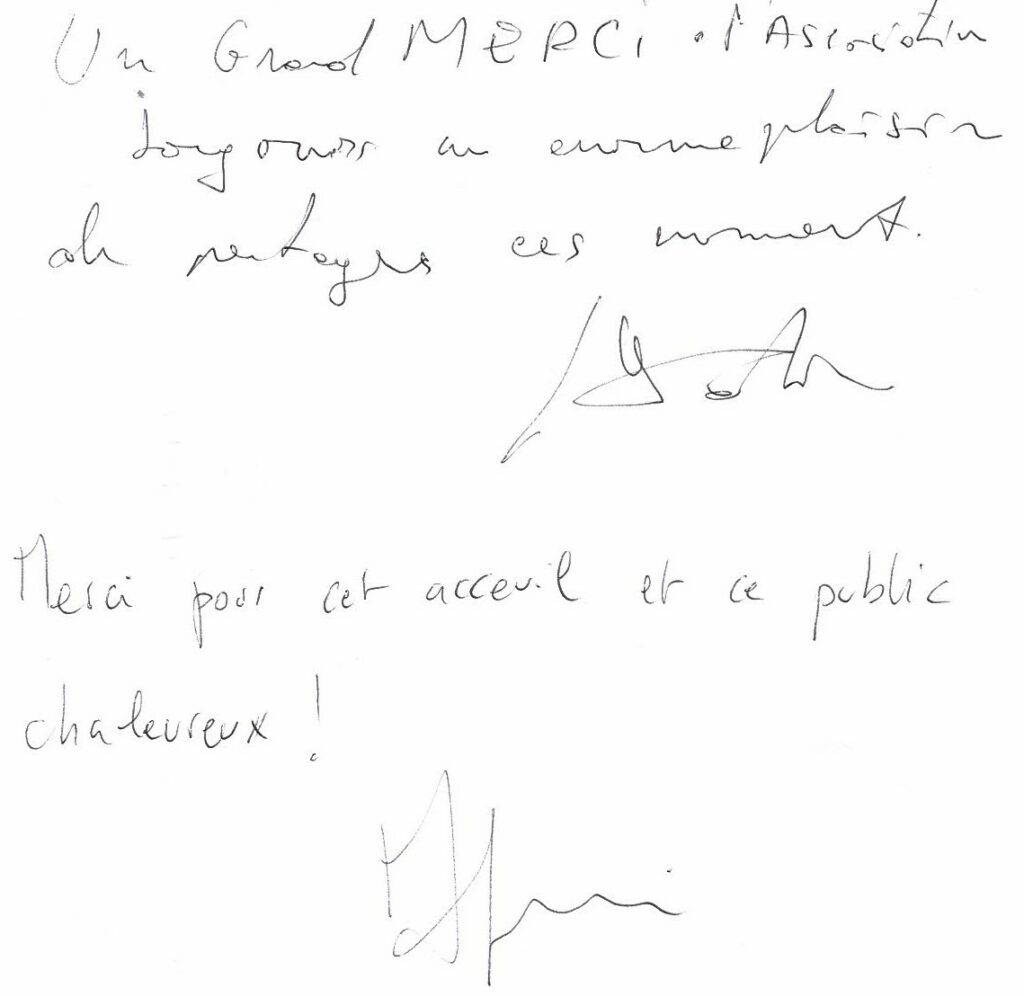 Un Grand MERCi à l'Association
toujours un enorme plaisir
de partager ces moment.
Merci pour cet acceuil et ce public
chaleureux !